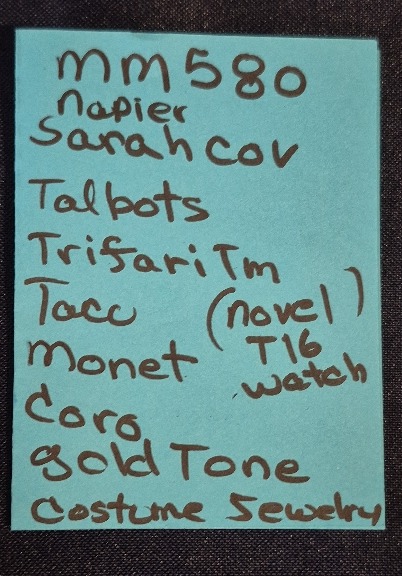 mm580
Napier
Sarah cov
Talbots
Trifari Tm
Tacc (novel)
T16
monet watch
Coro
gold Tone
Costume Jewelry